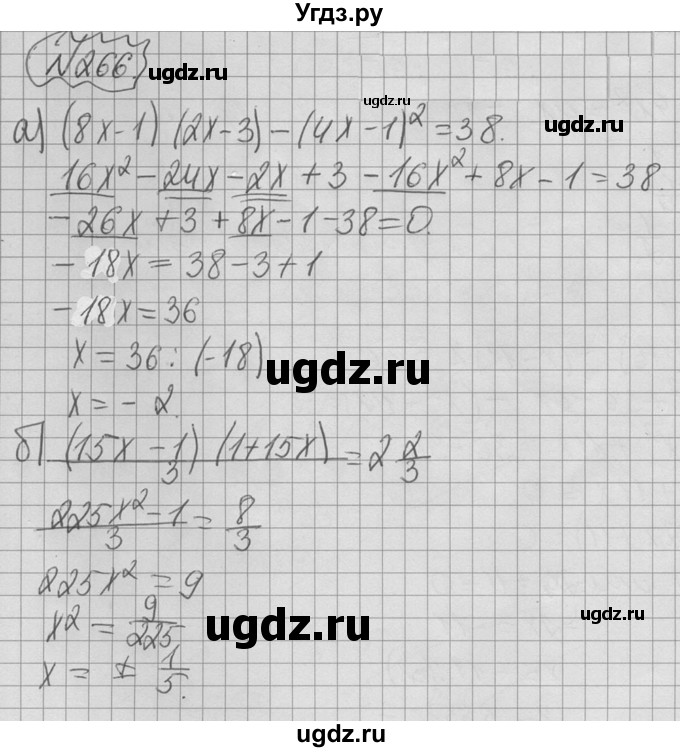 Угдз.ру
N266.
ugdz.ru
ugdz.ru
ugdz.ru
а) (8x-1) (2x-3) - (4x-1)² = 38.
16x² - 24x - 2x + 3 - 16x² + 8x - 1 = 38.
- 26x + 3 + 8x - 1 - 38 = 0.
- 18x = 38 - 3 + 1
- 18x = 36
x = 36 : (-18)
ugdz.ru
x = - 2.
б) (15x - 1) (1 + 15x) / 3 = 2 2/3
225x² - 1 / 3 = 8/3
225x² = 9
x² = 9/225
ugdz.ru
ugdz.ru
x = ± 1/5.
ugdz.ru